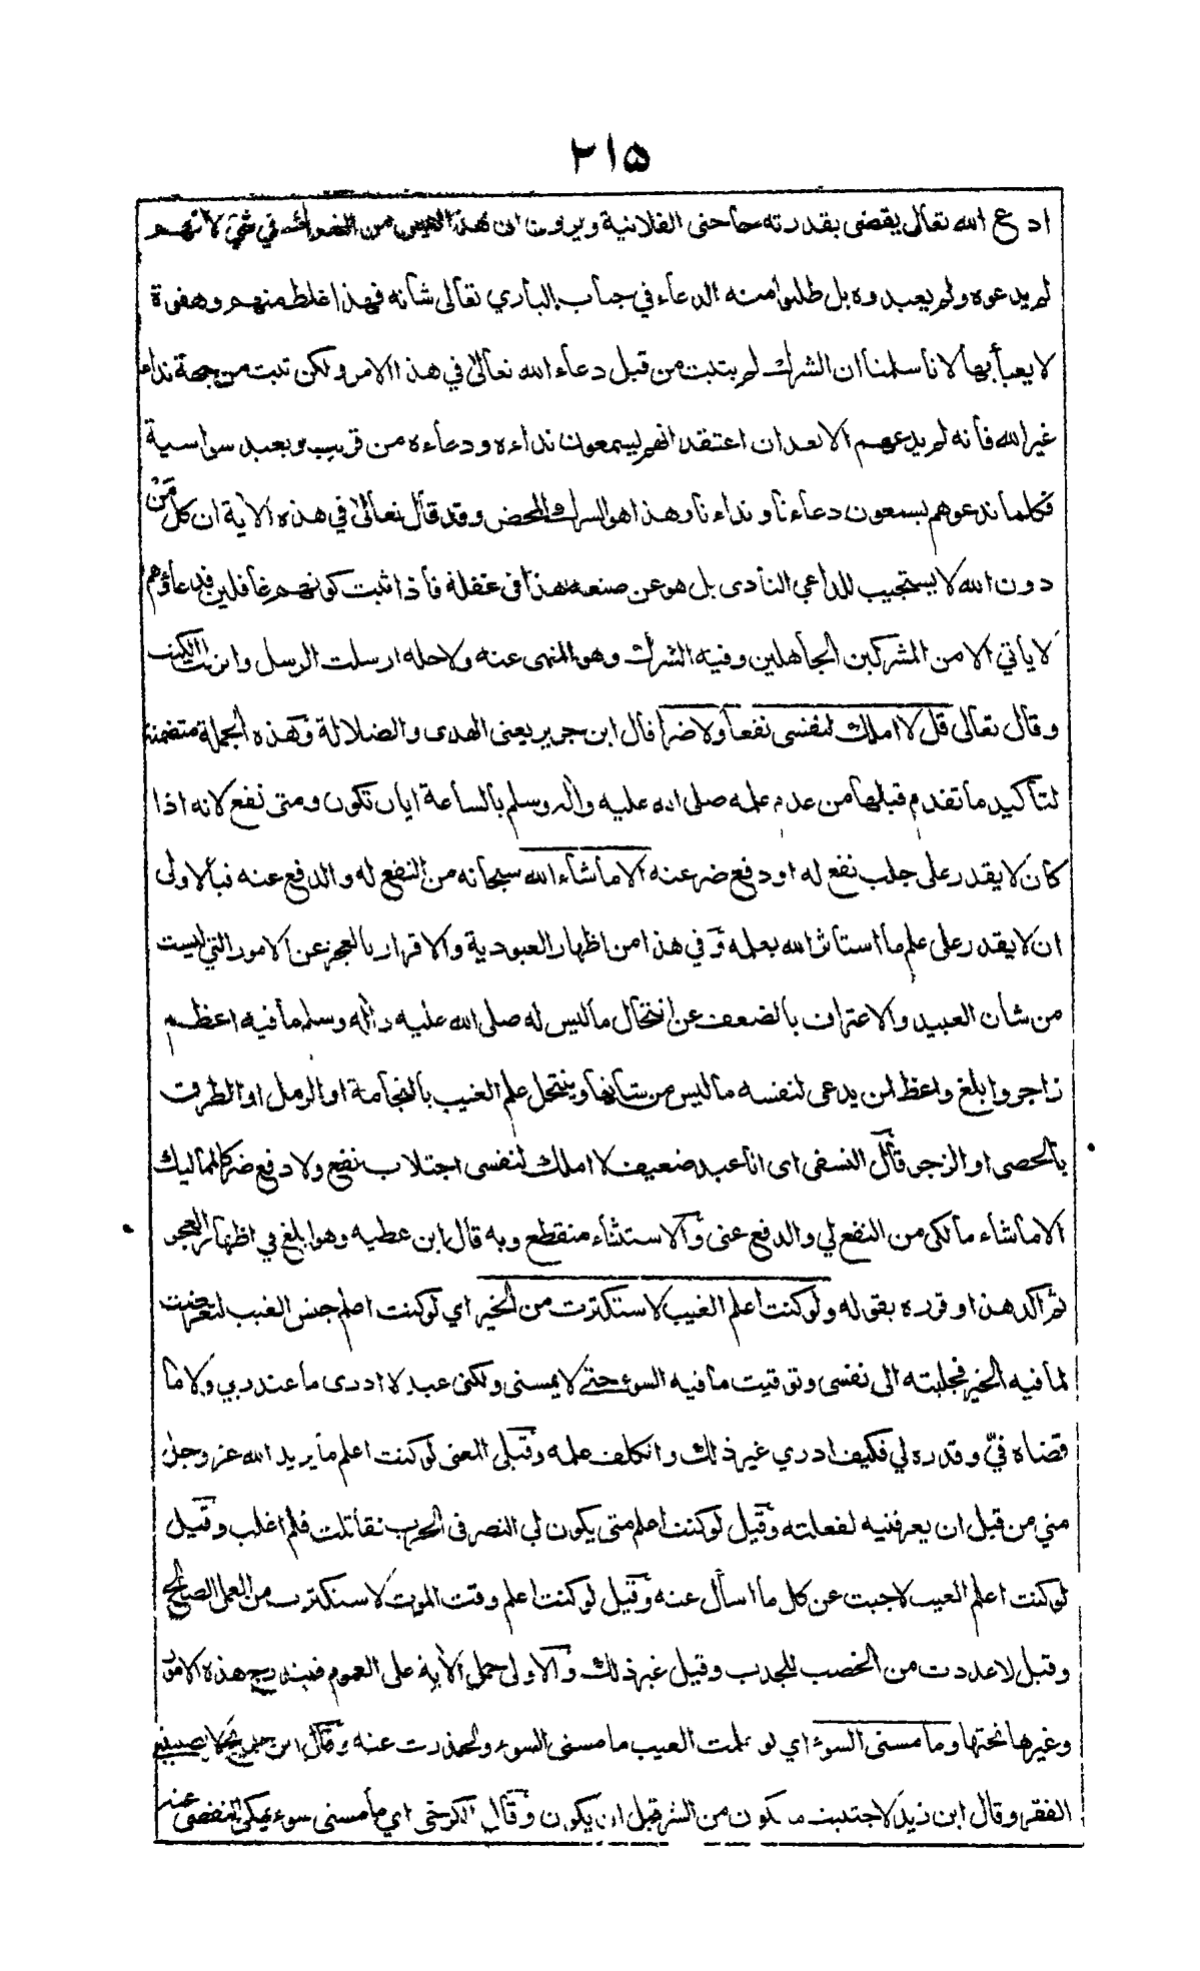 ٢١٥
ادع الله تعالى يقضى بقدرته حاجتى الفلانية ويرون ان هذا ليس من الشرك في شيء لانهم
لم يدعوه ولم يعبدوه بل طلبوا منه الدعاء في جناب الباري تعالى شانه فهذا غلط منهم وهفوة
لا يعبأ بها لانا سلمنا ان الشرك لم يثبت من قبل دعاء الله تعالى في هذا الامر ولكن ثبت من جهة نداء
غير الله فانه لم يدعهم الا بعد ان اعتقد انهم يسمعون نداءه ودعاءه من قريب وبعيد سواسية
فكلما ندعوهم يسمعون دعاءنا ونداءنا وهذا هو الشرك المحض وقد قال تعالى في هذه الاية ان كل من
دون الله لا يستجيب للداعي النادى بل هو عن صنعه هذا فى غفلة فاذا ثبت كونهم غافلين فدعاؤهم
لا ياتي الا من المشركين الجاهلين وفيه الشرك وهو المنهى عنه ولاجله ارسلت الرسل وانزلت الكتب
وقال تعالى قل لا املك لنفسى نفعا ولا ضرا قال ابن جرير يعنى الهدى والضلالة وهذه الجملة متضمنة
لتاكيد ما تقدم قبلها من عدم علمه صلى الله عليه واله وسلم بالساعة ايان تكون ومتى تقع لانه اذا
كان لا يقدر على جلب نفع له او دفع ضر عنه الا ما شاء الله سبحانه من النفع له والدفع عنه فبالاولى
ان لا يقدر على علم ما استاثر الله بعلمه وفي هذا من اظهار العبودية والاقرار بالعجز عن الامور التي ليست
من شان العبيد والاعتراف بالضعف عن انتحال ما ليس له صلى الله عليه واله وسلم ما فيه اعظم
زاجر وابلغ واعظ لمن يدعى لنفسه ما ليس من شانها وينتحل علم الغيب بالنجامة او الرمل او الطرق
بالحصى او الزجر قال النسفى اى انا عبد ضعيف لا املك لنفسى اجتلاب نفع ولا دفع ضر كالمماليك
الا ما شاء مالكى من النفع لي والدفع عنى والاستثناء منقطع وبه قال ابن عطيه وهو ابلغ في اظهار العجز
ثم اكد هذا وقرره بقوله ولو كنت اعلم الغيب لاستكثرت من الخير اي لو كنت اعلم جنس الغيب لتعرضت
لما فيه الخير فجلبته الى نفسى وتوقيت ما فيه السوء حتى لا يمسنى ولكنى عبد لا ادرى ما عند ربي ولا ما
قضاه فيّ وقدره لي فكيف ادري غير ذلك واتكلف علمه وقيل المعنى لو كنت اعلم ما يريد الله عز وجل
مني من قبل ان يعرفنيه لفعلته وقيل لو كنت اعلم متى يكون لي النصر فى الحرب لقاتلت فلم اغلب وقيل
لو كنت اعلم الغيب لاجبت عن كل ما اسأل عنه وقيل لو كنت اعلم وقت الموت لاستكثرت من العمل الصالح
وقيل لاعددت من الخصب للجدب وقيل غير ذلك والاولى حمل الاية على العموم فيندرج هذه الامور
وغيرها تحتها وما مسنى السوء اي لو علمت الغيب ما مسنى السوء ولحذرت عنه وقال ابن جريج لا يصيبني
الفقر وقال ابن زيد لاجتنبت ما يكون من الشر قبل ان يكون وقال الكرخي اي ما مسنى سوء يمكن التفصى عنه